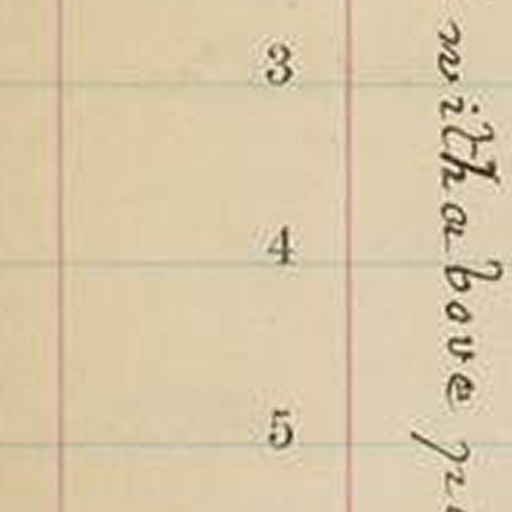 3
4
5
with above